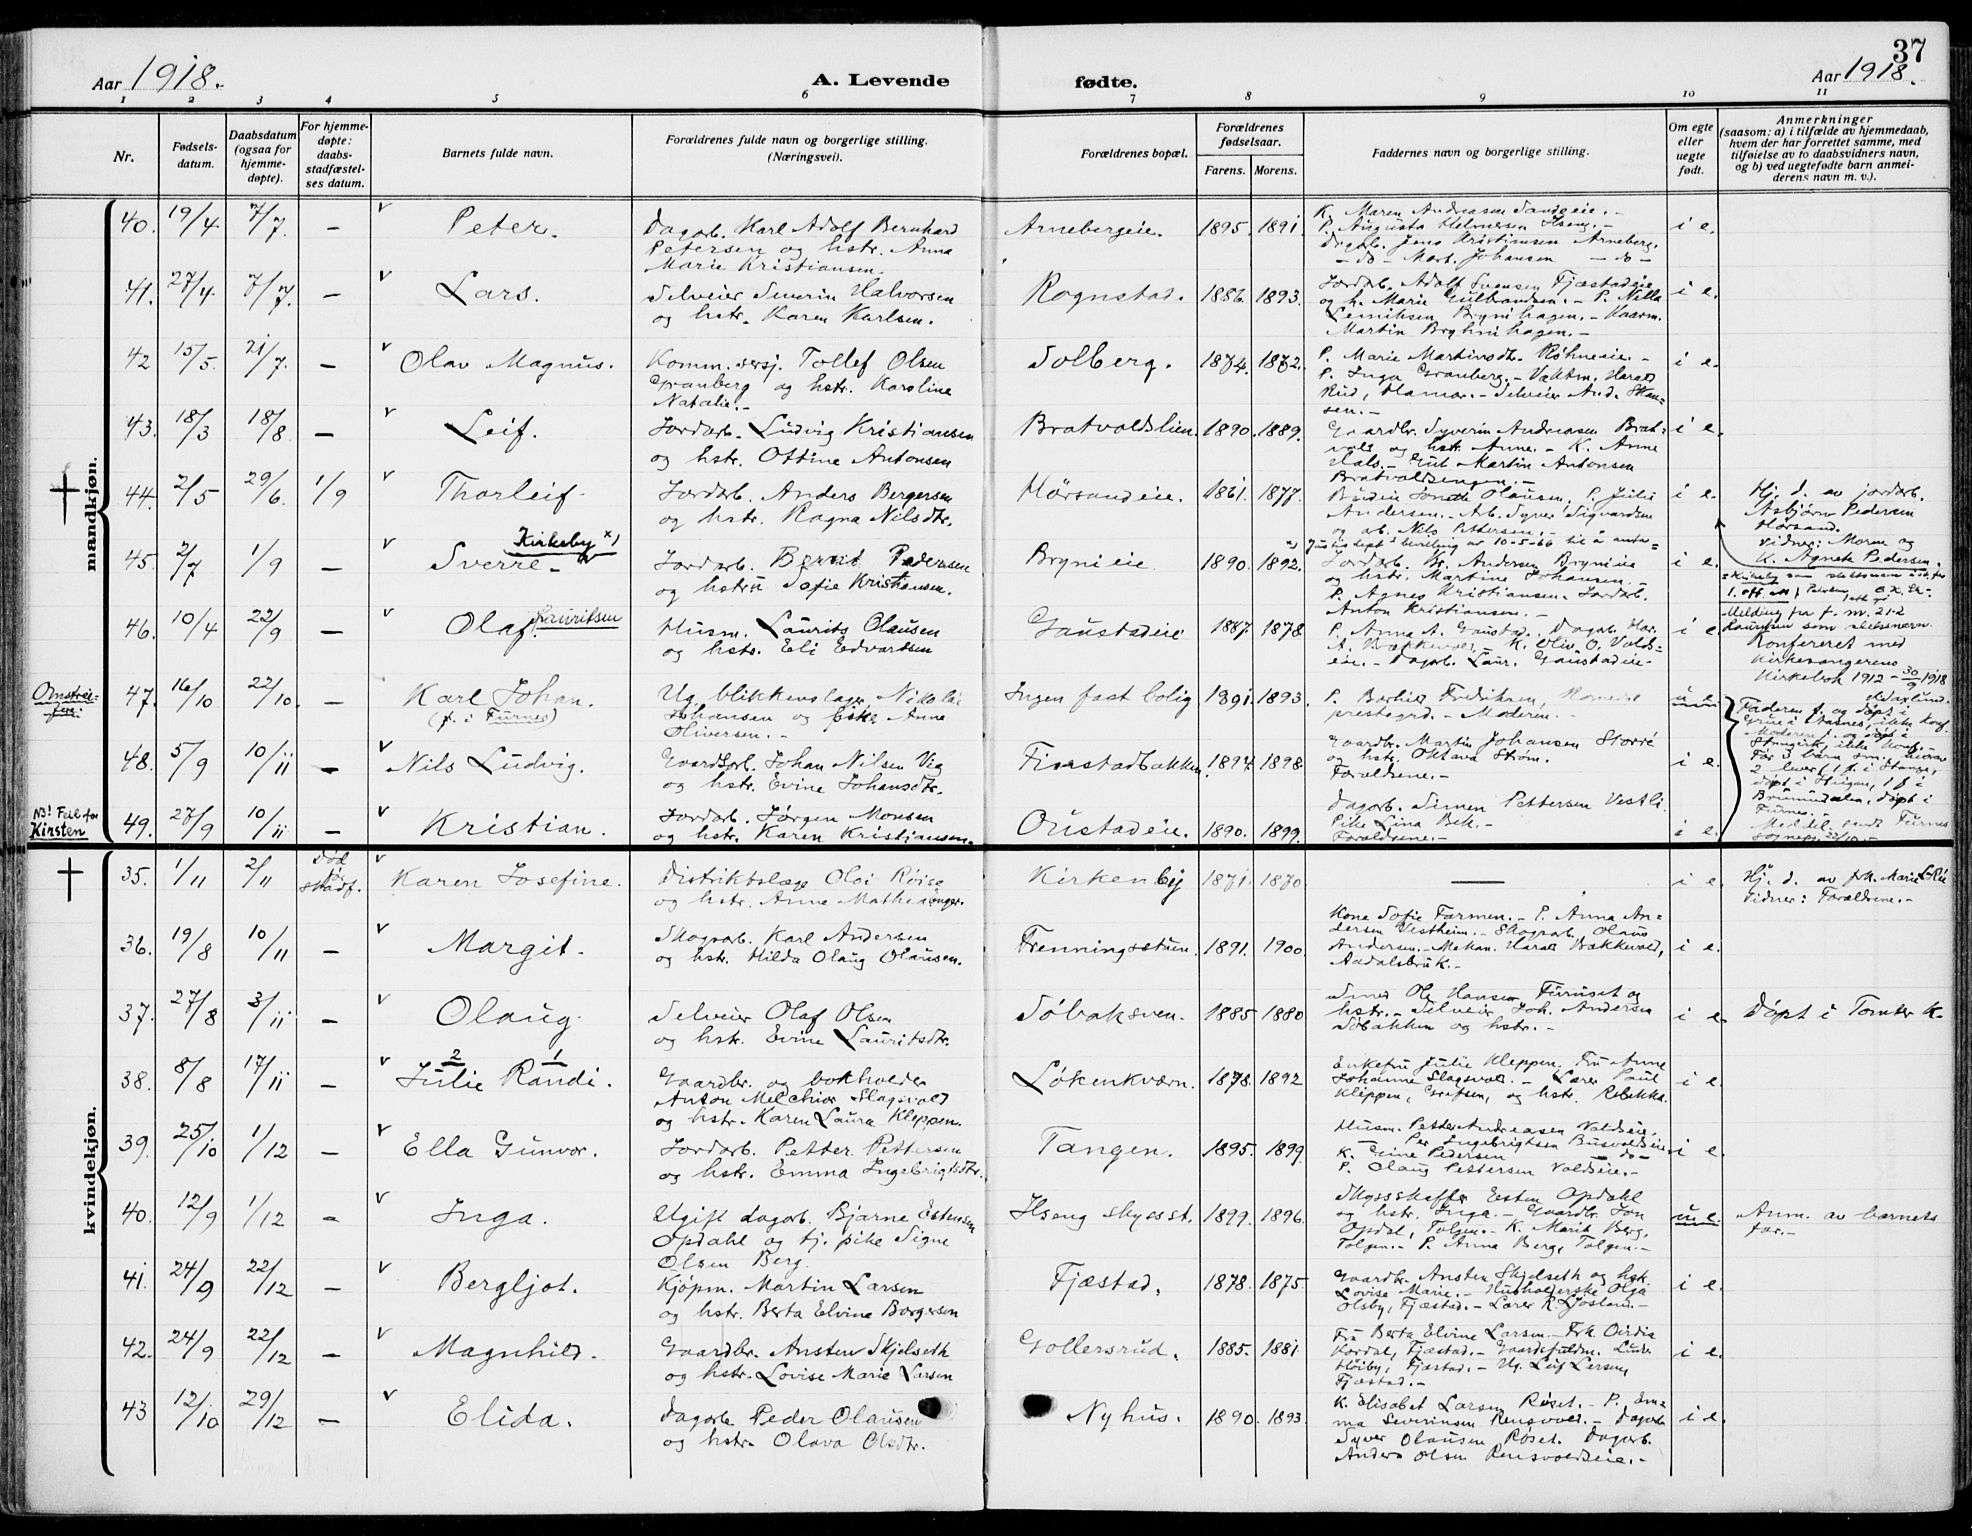 37
Aar 1918.
A. Levende
fødte.
Aar 1918.
1 2 3 4 5 6 7 8 9 10 11
Nr.
Fødsels-
datum.
Daabsdatum
(ogsaa for
hjemme-
døpte).
For hjemme-
døpte:
daabs-
stadfæstel-
ses datum.
Barnets fulde navn.
Forældrenes fulde navn og borgerlige stilling.
(Næringsvei).
Forældrenes bopæl.
Forældrenes
fødselsaar.
Farens. Morens.
Faddernes navn og borgerlige stilling.
Om egte
eller
uegte
født.
Anmerkninger
(saasom: a) i tilfælde av hjemmedaab,
hvem der har forrettet samme, med
tilføielse av to daabsvidners navn,
og b) ved uegtefødte barn anmel-
derens navn m. v.).
mandkjøn.
40. 19/4 7/7. — v Peter.
Dagarb. Karl Adolf Bernhard
Petersen og hstr. Anna
Marie Kristiansen.
Arnebergeie. 1895. 1891
K. Maren Andreasen Sandeeie. -
P. Augusta Helmersen Hseng. -
Dagarb. Jens Kristiansen Arneberg.
- do - Mart. Johansen - do -
i e.
41. 27/4 7/7. — v Lars.
Selveier Severin Halvorsen
og hstr. Karen Karlsen.
Rognstad. 1886. 1893.
Jordarb. Adolf Svensen Fjæstadeie
og h. Marie Gulbrandsen. - P. Nilla
Martin Brynihagen. -
i e.
42 15/5. 21/7. — v Olav Magnus.
Komm. versj. Tollef Olsen
Granberg og hstr. Karoline
Natalie. -
Solberg. 1874. 1872.
P. Marie Martinsdtr. Røhneeie. -
P. Inga Granberg. - Vaktm. Harald
Rud, Hamar. - Selveier And. Skan=
sen. -
i e.
43. 18/3 18/8. — v Leif.
Jordarb. Ludvig Kristiansen
og hstr. Ottine Antonsen
Bratvoldslien. 1890. 1889.
Gaardbr. Syverin Andreasen Brat=
vold og hstr. Anne. - K. Anne
Hals. - Gut Martin Antonsen
Bratvoldsengen. -
i e.
44. 2/5 29/6. 1/9 v Thorleif.
Jordarb. Anders Bergersen
og hstr. Ragna Nilsdtr.
Hørsandeie. 1861. 1877.
Budeie Olausen. P. Julie
Andersen. - Arb. Syver Sigvardsen
og arb. Nils Pettersen. -
i e.
Hj. d. av jordarb.
Asbjørn Pedersen
Hørsand.
Vidner: Moren og
K. Agnete Pedersen.
45. 2/7 1/9 — v Sverre Kirkeby x)
Jordarb. Bernt Pedersen
og hstru Sofie Kristiansen.
Brynieie. 1890. 1892.
x) Justisdept's bevilling av 10-5-66 til å anta=
Jordarb. Br. Andersen Brynieie
og hstr. Martine Johansen. -
P. Agnes Kristiansen. Jordarb.
Anton Kristiansen. -
i e.
46. 10/4 22/9 — v Olaf. Lauritsen
Husm. Laurits Olausen
og hstr. Eli Edvartsen
Gaustadeie 1887. 1878.
P. Anna A. Gaustad. Dagarb. Har.
A. Bækkevold. - K. Oliv. O. Volds-
eie. - Dagarb. Laur. Gaustadeie.
i e.
Melding fra f. m. 21-2
Lauritsen som slektsnavn.
Konfereret med
Kirkesangerens
Kirkebok 1912 - 30/9 1918
47. 16/10 22/10. — v Karl Johan.
(f. i Furnes)
Ug. blikkenslager Nikolai
Johansen og pike Anne
Oliversen. -
Ingen fast bolig 1891. 1893.
P. Barbie Fredriksen, Romedal
prestegrd. - Moderen. -
u e.
Faderen f. og døpt i
Moderen f. og døpt i
48. 5/9 10/11 — v Nils Ludvig.
Gaardarb. Johan Nilsen Vig
og hstr. Evine Johansdtr.
Finstadbakken. 1894. 1898.
Gaardbr. Martin Johansen Storrø
og hstr. Oktava Strøm.
Forældrene. -
i e.
NB! Feil for
Kirsten
49. 27/9 10/11 — v Kristian.
Jordarb. Jørgen Monsen
og hstr. Karen Kristiansen.
Oustadeie. 1890. 1899.
Dagarb. Simen Pettersen Vestli.
Pike Lina Bek. -
Forældrene. -
i e.
kvindekjøn.
35. 1/11 2/11 Død
før
stadf. v Karen Josefine.
Distriktslæge Olai Røise
og hstr. Anne Mathea Enger.
Kirkenby 1871. 1870.
—
i e.
Hj. d. av frk. Marie Lie
Vidner: Forældrene. -
36. 19/8 10/11 — v Margit.
Skogsarb. Karl Andersen
og hstr. Hilda Olaug Olausen.
Frenningstuen. 1891. 1900.
Kone Sofie Farmen. - P. Anna An=
dersen Vestheim. - Skogsarb. Olaus
Andersen. - Mekan. Harald Bækkevold,
Aadalsbruk. -
i e.
37. 27/8 3/11 — v Olaug.
Selveier Olaf Olsen
og hstr. Evine Lauritsdtr.
Søbaksven. 1885 1880
Smed Ole Hansen Furuset og
hstr. - Selveier Joh. Andersen
Søbakken og hstr. -
i e.
Døpt i Tomter K.
38. 8/8 17/11 — v Julie Randi.
2 1
Gaardbr. og bokholder
Anton Melchior Slagsvold
og hstr. Karen Laura Kleppen.
Løkenkværn. 1878. 1892
Enkefru Julie Kleppen. Fru Anne
Johanne Slagsvold. - Lærer Paul
Kleppen, Grefsen, og hstr. Rebekka.
i e.
39. 25/10 1/12 — v Ella Gunvor.
Jordarb. Petter Pettersen
og hstr. Emma Ingebrigtsdtr.
Tangen. 1895. 1899.
Husm. Petter Andreasen Voldseie.
— Per Ingebrigtsen Busvoldseie
K. Eine Pedersen - do -
P. Olaug Pettersen Voldseie. -
i e.
40. 12/9 1/12 — v Inga.
Ugift dagarb. Bjarne Estensen
Opdahl og tj. pike Signe
Olsen Berg.
Hseng skysst. 1899. 1896.
Skysskaffer Esten Opdahl
og hstr. Inga. - Gaardbr. Jon
Opdal, Tolgen. - K. Marit Berg,
Tolgen. - P. Anna Berg, Tolgen. -
u e.
Anm. av barnets
far. -
41. 24/9 22/12 — v Bergljot.
Kjøpm. Martin Larsen
og hstr. Berta Elvine Borgersen
Fjæstad. 1878. 1875.
Gaardbr. Ansten Skjelseth og hstr.
Lovise Marie. - Husholderske Olga
Olsby, Fjæstad. - Lærer R. Gjøslien. -
i e.
42. 24/9 22/12 — v Magnhild.
Gaardbr. Ansten Skjelseth
og hstr. Lovise Marie Larsen
Gollersrud. 1885. 1881
Fru Berta Elvine Larsen. - Frk. Oirdia
Kordal, Fjæstad. - Gaardsfuldm. Ludv.
Høiby, Fjæstad. - Ug. Leif Larsen,
Fjæstad. -
i e.
43 12/10 29/12 — v Elida.
Dagarb. Peder Olausen
og hstr. Olava Olsdtr.
Nyhus. 1890. 1893.
K. Elisabet Larsen Røset. - P. Em=
ma Severinsen Rensvold. - Dagarb.
Syver Olausen Røset. Dagarb.
Anders Olsen Rensvoldseie. -
i e.